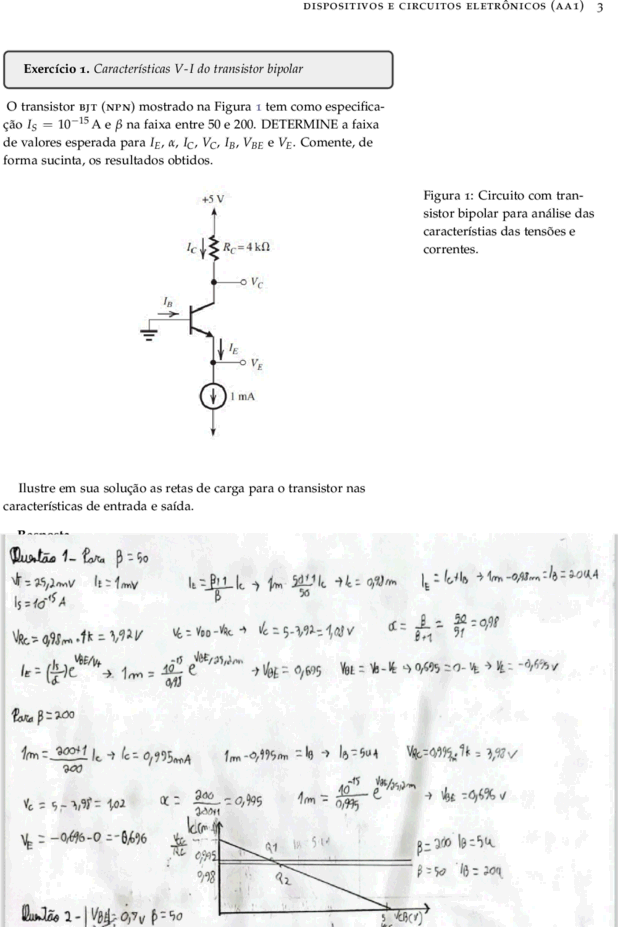 DISPOSITIVOS E CIRCUITOS ELETRÔNICOS (AA1) 3
Exercício 1. Características V-I do transistor bipolar
O transistor BJT (NPN) mostrado na Figura 1 tem como especifica-
ção I_S = 10^{-15} A e β na faixa entre 50 e 200. DETERMINE a faixa
de valores esperada para I_E, α, I_C, V_C, I_B, V_{BE} e V_E. Comente, de
forma sucinta, os resultados obtidos.
Figura 1: Circuito com tran-
sistor bipolar para análise das
característias das tensões e
correntes.
+5 V
I_C R_C = 4 kΩ
V_C
I_B
I_E
V_E
1 mA
Ilustre em sua solução as retas de carga para o transistor nas
características de entrada e saída.
Resposta
Questão 1 - Para β = 50
Vt = 25,2mV I_E = 1mV I_E = β+1/β I_C → 1m = 50+1/50 I_C → I_C = 0,98m I_E = I_C + I_B → 1m - 0,98m = I_B = 20uA
I_S = 10^{-15} A
V_{RC} = 0,98m . 4k = 3,92V V_C = V_{DD} - V_{RC} → V_C = 5 - 3,92 = 1,08V α = β/β+1 = 50/51 = 0,98
1m = 10^{-15}/0,98 e^{VBE/25,2m} → V_{BE} = 0,695 V_{BE} = V_B - V_E → 0,695 = 0 - V_E → V_E = -0,695V
Para β = 200
1m = 200+1/200 I_C → I_C = 0,995mA 1m - 0,995m = I_B → I_B = 5uA V_{RC} = 0,995m . 4k = 3,98V
V_C = 5 - 3,98 = 1,02 α = 200/200+1 = 0,995 1m = 10^{-15}/0,995 e^{VBE/25,2m} → V_{BE} = 0,696V
V_E = -0,696 - 0 = -0,696
0,995 Q1
0,98 Q2
β = 200 I_B = 5u
β = 50 I_B = 20u
5 V_{CB}(V)
Questão 2 - |V_{BE}| = 0,7V β = 50